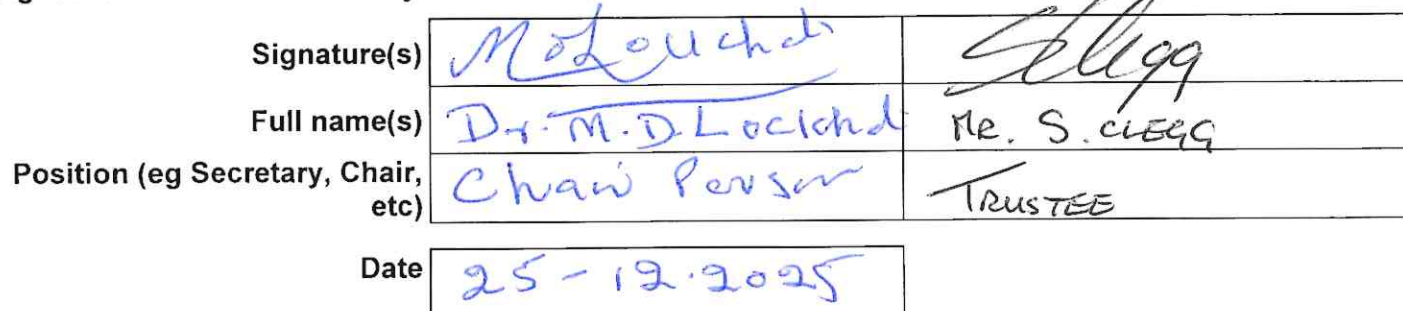 Signature(s) Clegg
Full name(s) Dr. M.D. MR. S. CLEGG
Position (eg Secretary, Chair, Chair Person TRUSTEE
etc)
Date 25-12.2025